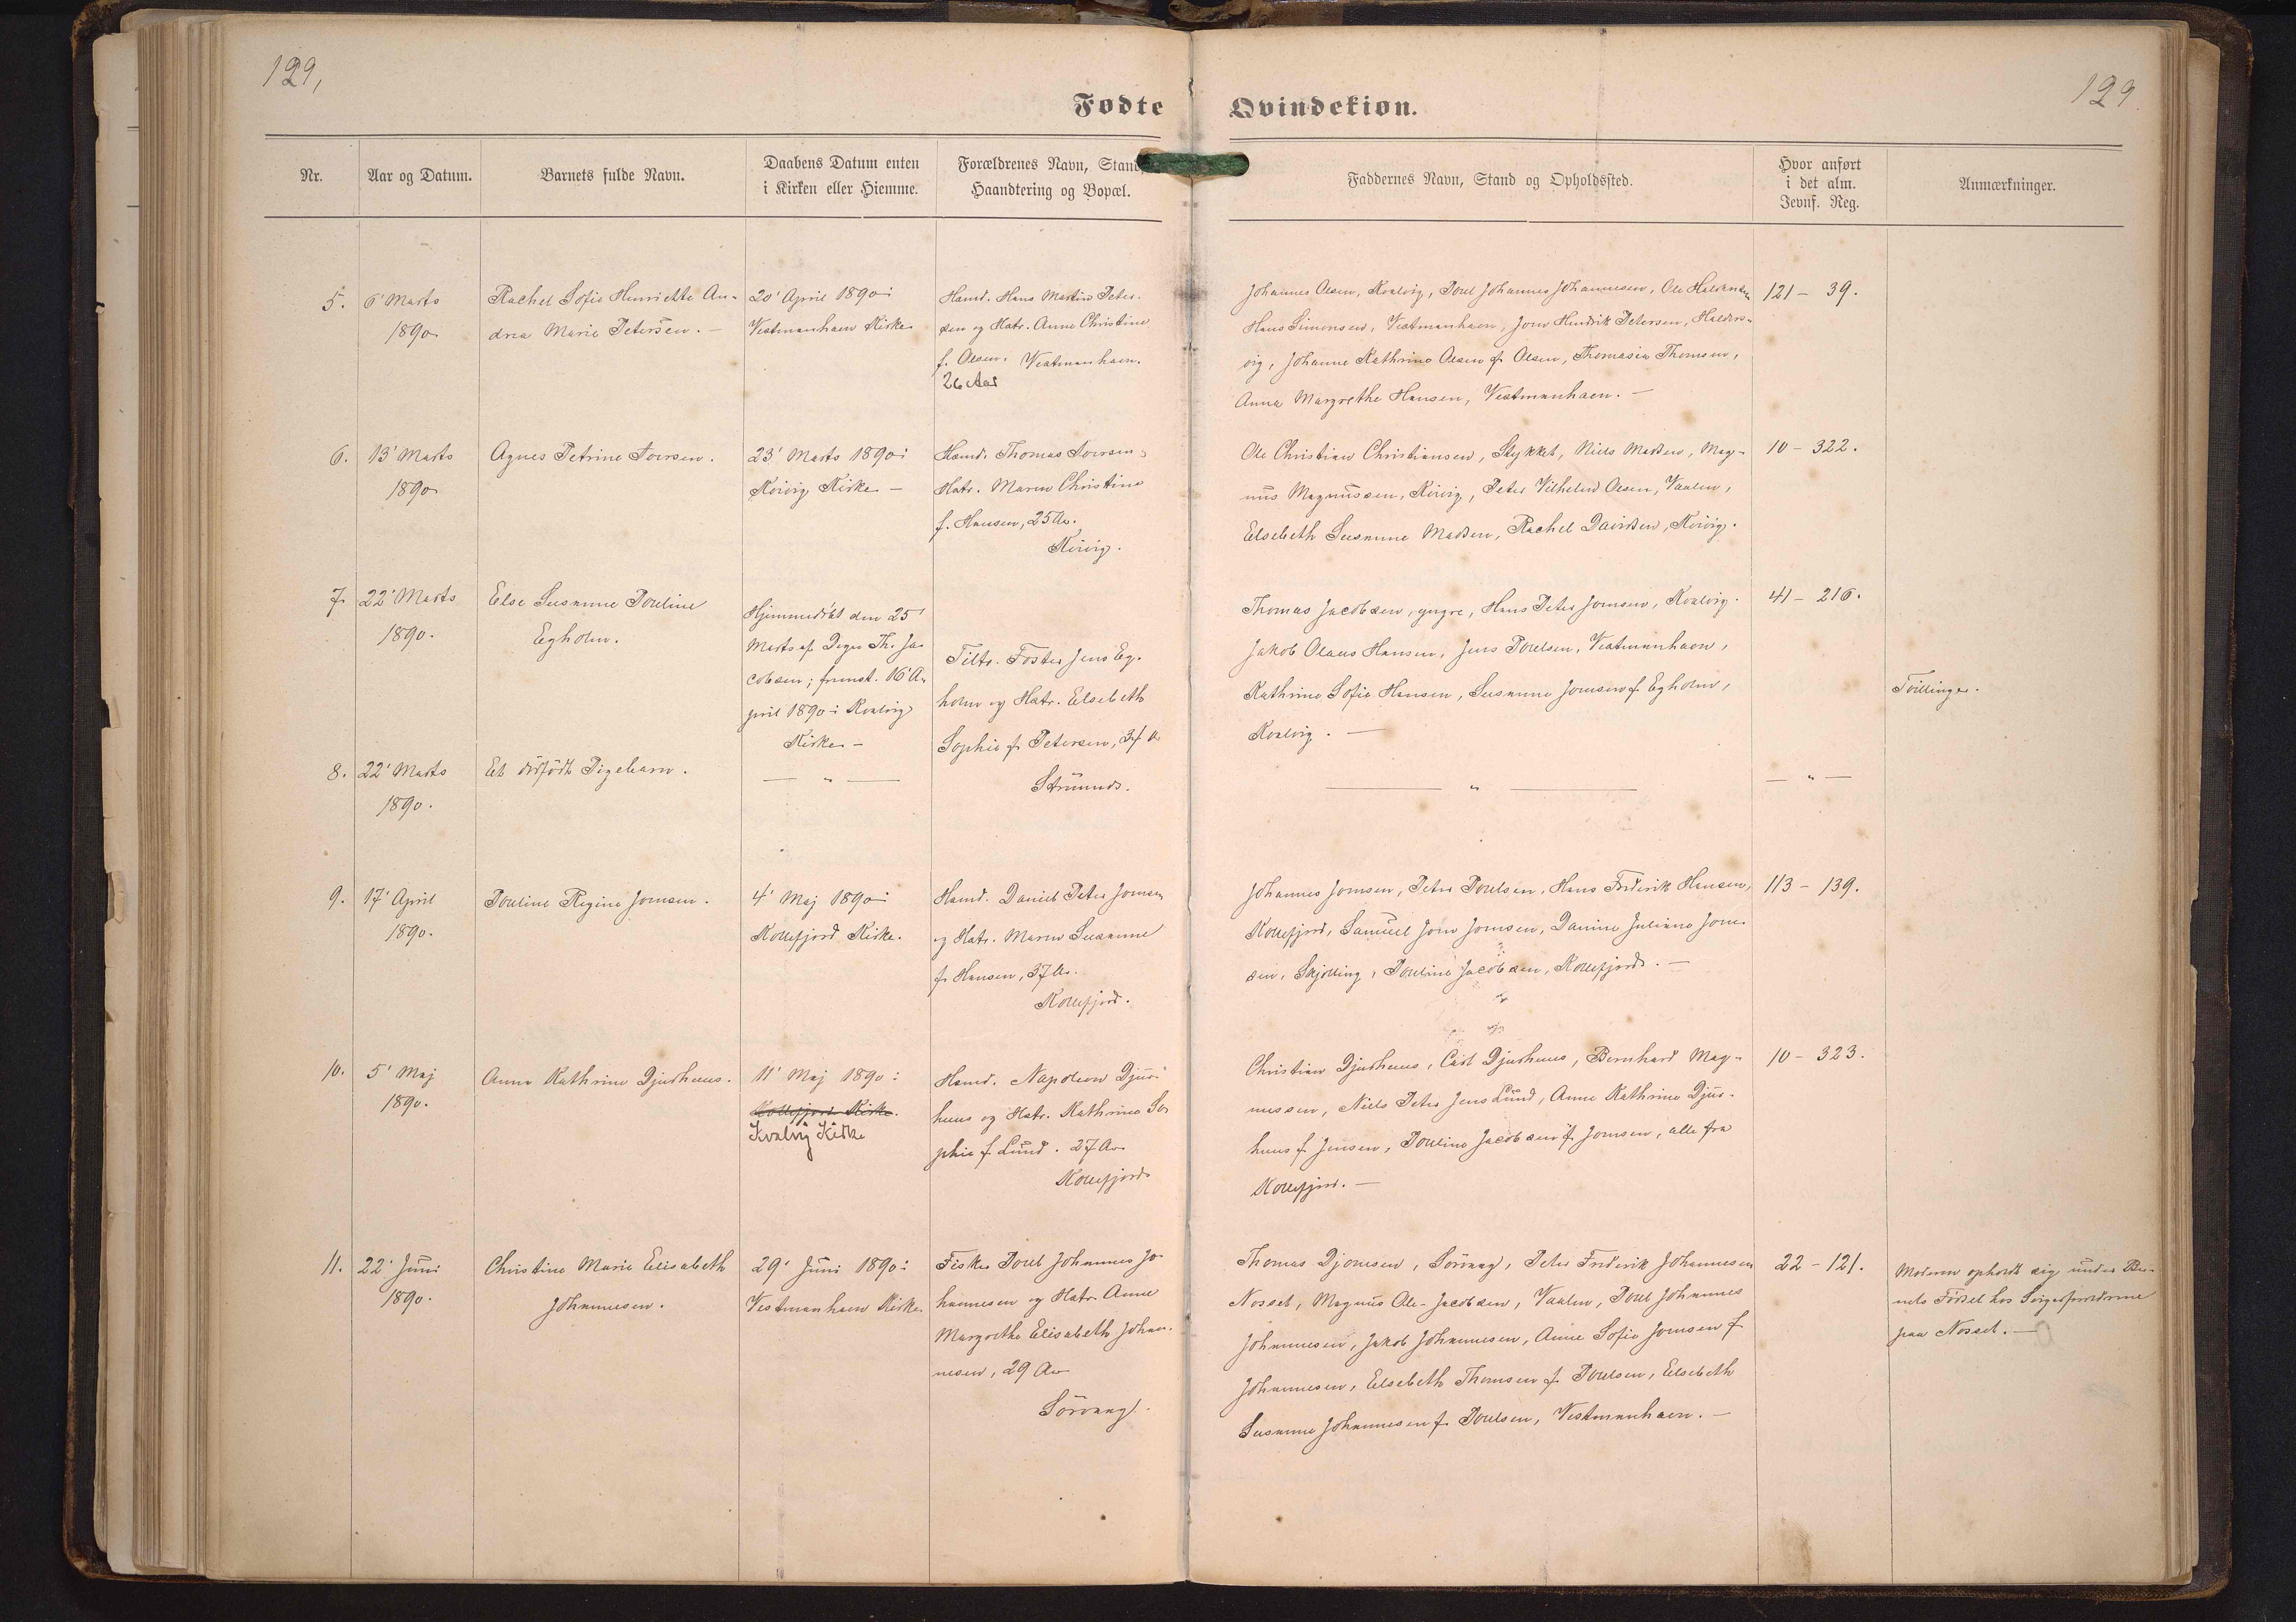 129,
129
Fødte Qvindekiøn.
Nr.
Aar og Datum.
Barnets fulde Navn.
Daabens Datum enten
i Kirken eller Hiemme.
Forældrenes Navn, Stand,
Haandtering og Bopæl.
Faddernes Navn, Stand og Opholdssted.
Hvor anført
i det alm.
Jevnf. Reg.
Anmærkninger.
5.
6' Marts
1890
Rachel Sofie Henriette An-
drea Marie Petersen. -
20' April 1890 i
Vestmanhavn Kirke
Hamd. Hans Martin Peter-
sen og Hstr. Anne Christine
f. Olsen. Vestmanhavn.
26 Aar
Johannes Olsen, Kvalvig, Poul Johannes Johannesen, Ole Haldansen
Hans Simonsen, Vestmanhavn, Jens Hendrik Petersen, Halders-
vig, Johanne Kathrine Olsen f. Olsen, Thomasia Thomsen,
Anna Margrethe Hansen, Vestmanhavn. -
121 - 39.
6.
13' Marts
1890
Agnes Petrine Joensen.
23' Marts 1890 i
Kvivig Kirke -
Hamd. Thomas Joensen,
Hstr. Maren Christine
f. Hansen, 25 Ar.
Kvivig.
Ole Christian Christiansen, Stykket, Niels Madsen, Mag-
nus Magnussen, Kvivig, Peter Vilhelm Olsen, Vaalen,
Elsebeth Susanne Madsen, Rachel Davidsen, Kvivig.
10 - 322.
7.
22' Marts
1890.
Else Susanne Pouline
Egholm.
Hjemmedøbt den 25'
Marts af Degn Th. Ja-
cobsen; fremst. 16' A-
pril 1890 i Kvalvig
Kirke -
Jens Eg-
holm og Hstr. Elsebeth
Sophie f. Petersen, 34 A
Strømnæs.
Thomas Jacobsen, yngre, Hans Peter Joensen, Kvalvig.
Jakob Olaus Hansen, Jens Poulsen, Vestmanhavn,
Kathrine Sofie Hansen, Susanne Joensen f. Egholm,
Kvalvig. -
41 - 216.
Tvillinger.
8.
22' Marts
1890.
Et dødfødt Pigebarn.
— " —
— " —
— " —
9.
17' April
1890.
Pouline Regine Joensen.
4' Maj 1890 i
Kollefjord Kirke.
Hamd. Daniel Peter Joensen
og Hstr. Maren Susanne
f. Hansen, 37 Ar.
Kollefjord.
Johannes Joensen, Peter Poulsen, Hans Frederik Hansen,
Kollefjord, Samuel Joen Joensen, Danine Juliane Joen-
sen, Skjelling, Pouline Jacobsen, Kollefjord. -
113 - 139.
10.
5' Maj
1890.
Anna Kathrine Djurhuus.
11' Maj 1890 i
Kollefjord Kirke.
Kvalvig Kirke
Hamd. Napoleon Djur-
huus og Hstr. Kathrine So-
phie f. Lund. 27 Ar
Kollefjord
Christian Djurhuus, Carl Djurhuus, Bernhard Mag-
nussen, Niels Peter Jens Lund, Anne Kathrine Djur-
huus f. Jensen, Pouline Jacobsen f. Joensen, alle fra
Kollefjord. -
10 - 323.
11.
22' Juni
1890.
Christine Marie Elisabeth
Johannesen.
29' Juni 1890 i
Vestmanhavn Kirke
Fisker Poul Johannes Jo-
hannesen og Hstr. Anne
Margrethe Elisabeth Johan-
nesen, 29 Ar
Sörvaag.
Thomas Djonesen, Sörvaag, Peter Frederik Johannesen
Nosset, Magnus Ole-Jacobsen, Vaalen, Poul Johannes
Johannesen, Jakob Johannesen, Anne Sofie Joensen f.
Johannesen, Elsebeth Thomsen f. Poulsen, Elsebeth
Susanne Johannesen f. Poulsen, Vestmanhavn. -
22 - 121.
Moderen opholdt sig under Bar-
nets Fødsel hos Svigerforældrene
paa Nosset. -